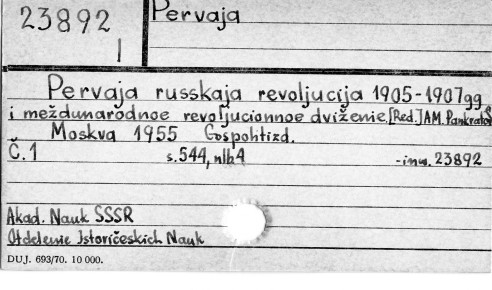 23892
1
Pervaja
Pervaja russkaja revoljucija 1905-1907gg
i meždunarodnoe revoljucionnoe dviženie. [Red.] A.M. Pankratov
Moskva 1955 Gospolitizd.
Č.1 s.544, nlb4 -inw. 23892
Akad. Nauk SSSR
Otdelenie Istoričeskich Nauk
DUJ. 693/70. 10 000.